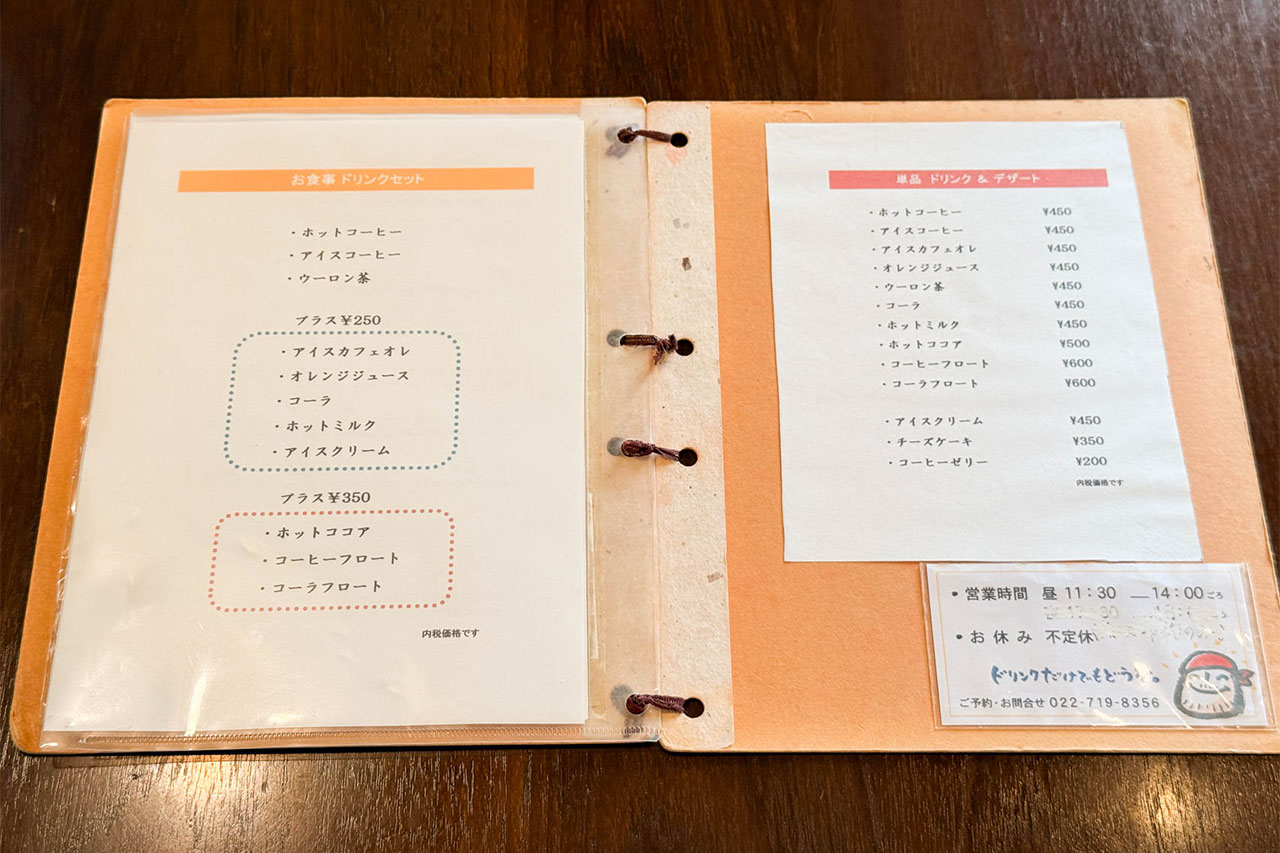 お食事 ドリンクセット
・ホットコーヒー
・アイスコーヒー
・ウーロン茶
プラス¥250
・アイスカフェオレ
・オレンジジュース
・コーラ
・ホットミルク
・アイスクリーム
プラス¥350
・ホットココア
・コーヒーフロート
・コーラフロート
内税価格です
単品 ドリンク & デザート
・ホットコーヒー ¥450
・アイスコーヒー ¥450
・アイスカフェオレ ¥450
・オレンジジュース ¥450
・ウーロン茶 ¥450
・コーラ ¥450
・ホットミルク ¥450
・ホットココア ¥500
・コーヒーフロート ¥600
・コーラフロート ¥600
・アイスクリーム ¥450
・チーズケーキ ¥350
・コーヒーゼリー ¥200
内税価格です
・営業時間 昼 11:30 ―14:00ごろ
・お休み 不定休
ドリンクだけでもどうぞ。
ご予約・お問合せ 022-719-8356